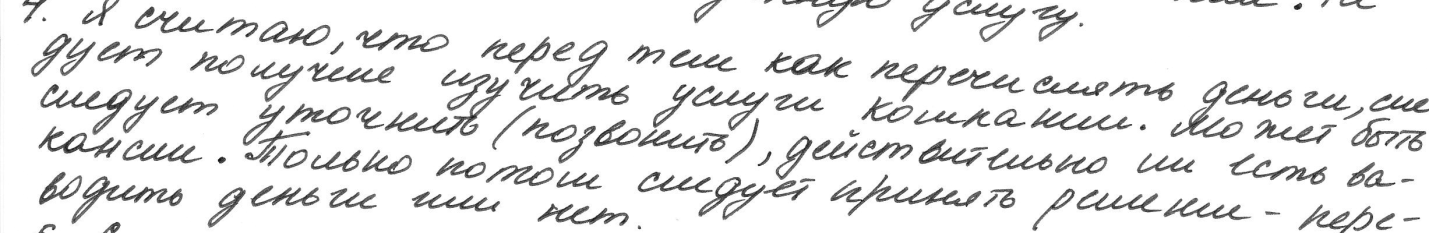 услугу.
4. Я считаю, что перед тем как перечислять деньги, сле
дует получше изучить услуги компании. Может быть
следует уточнить (позвонить), действительно ли есть ва-
кансии. Только потом следует принять решение - пере-
водить деньги или нет.